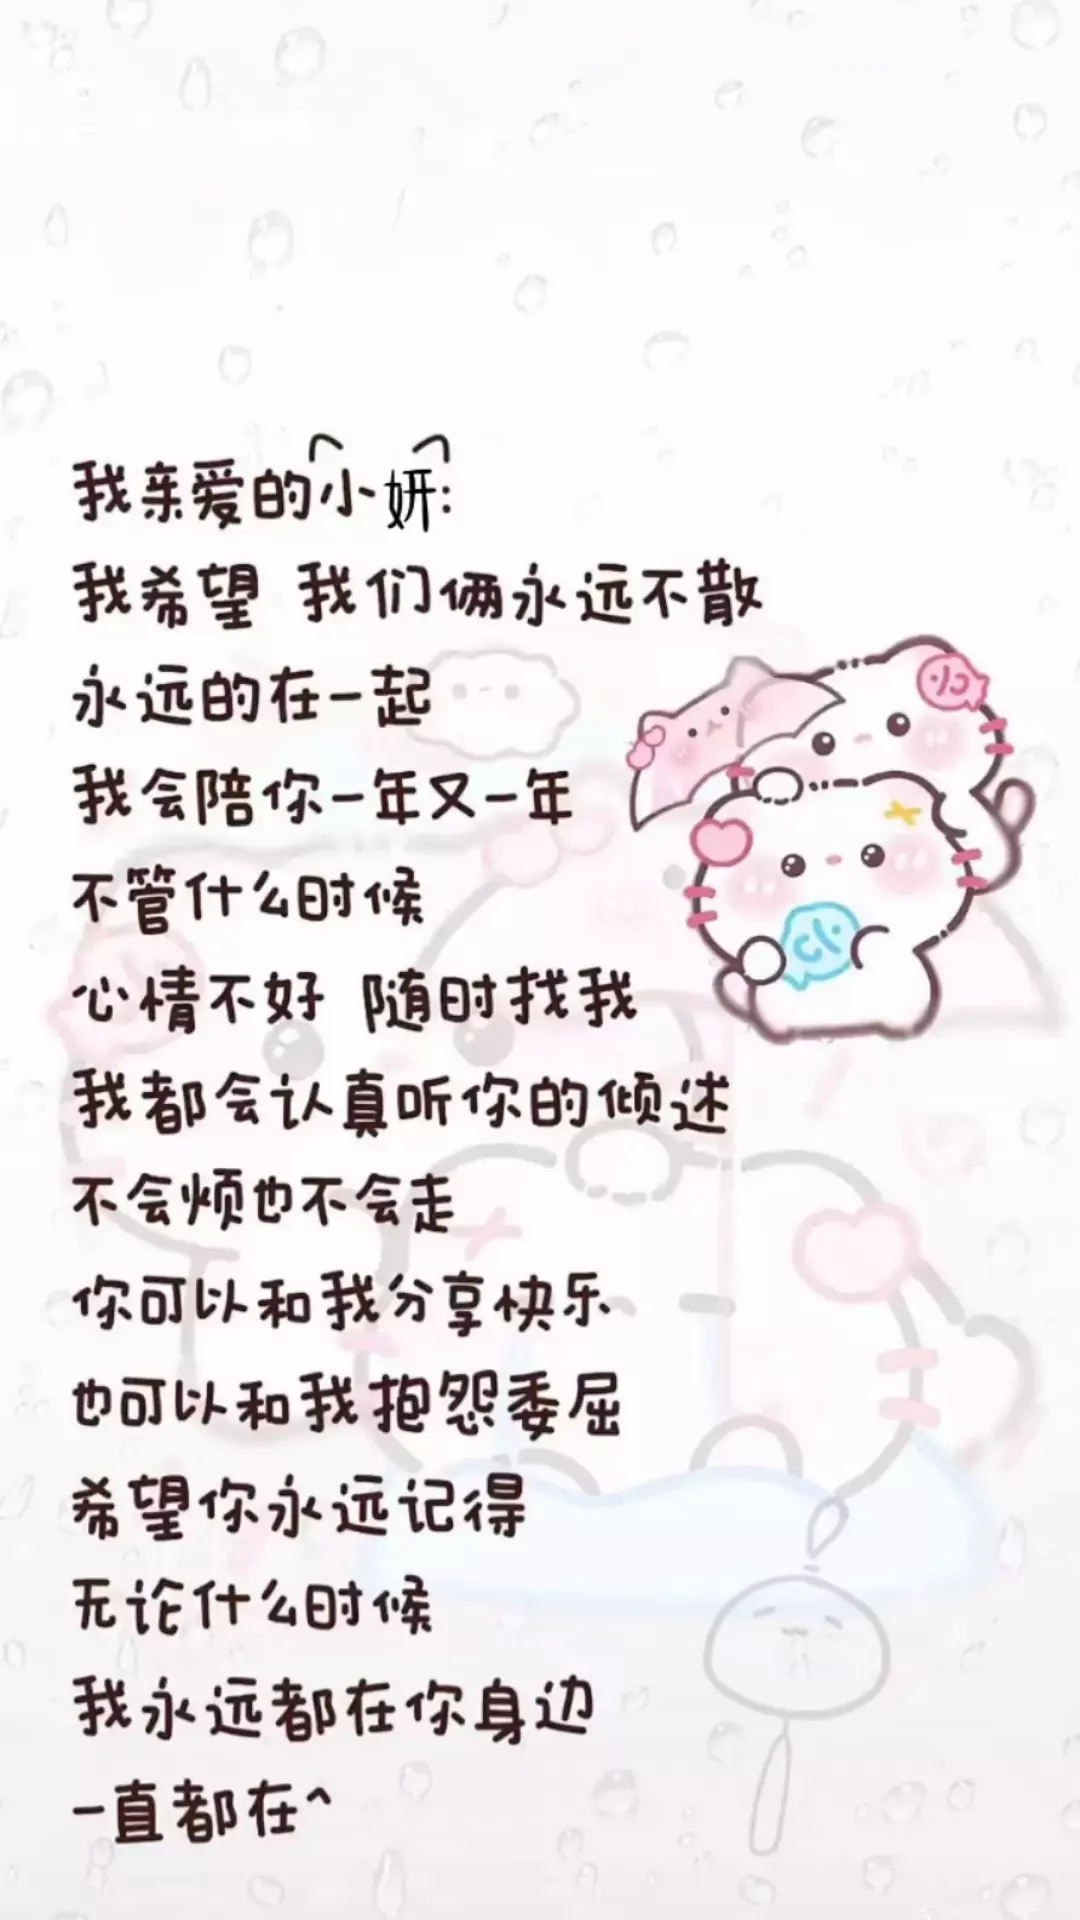 我亲爱的小妍:
我希望 我们俩永远不散
永远的在一起
我会陪你一年又一年
不管什么时候
心情不好 随时找我
我都会认真听你的倾述
不会烦也不会走
你可以和我分享快乐
也可以和我抱怨委屈
希望你永远记得
无论什么时候
我永远都在你身边
一直都在^